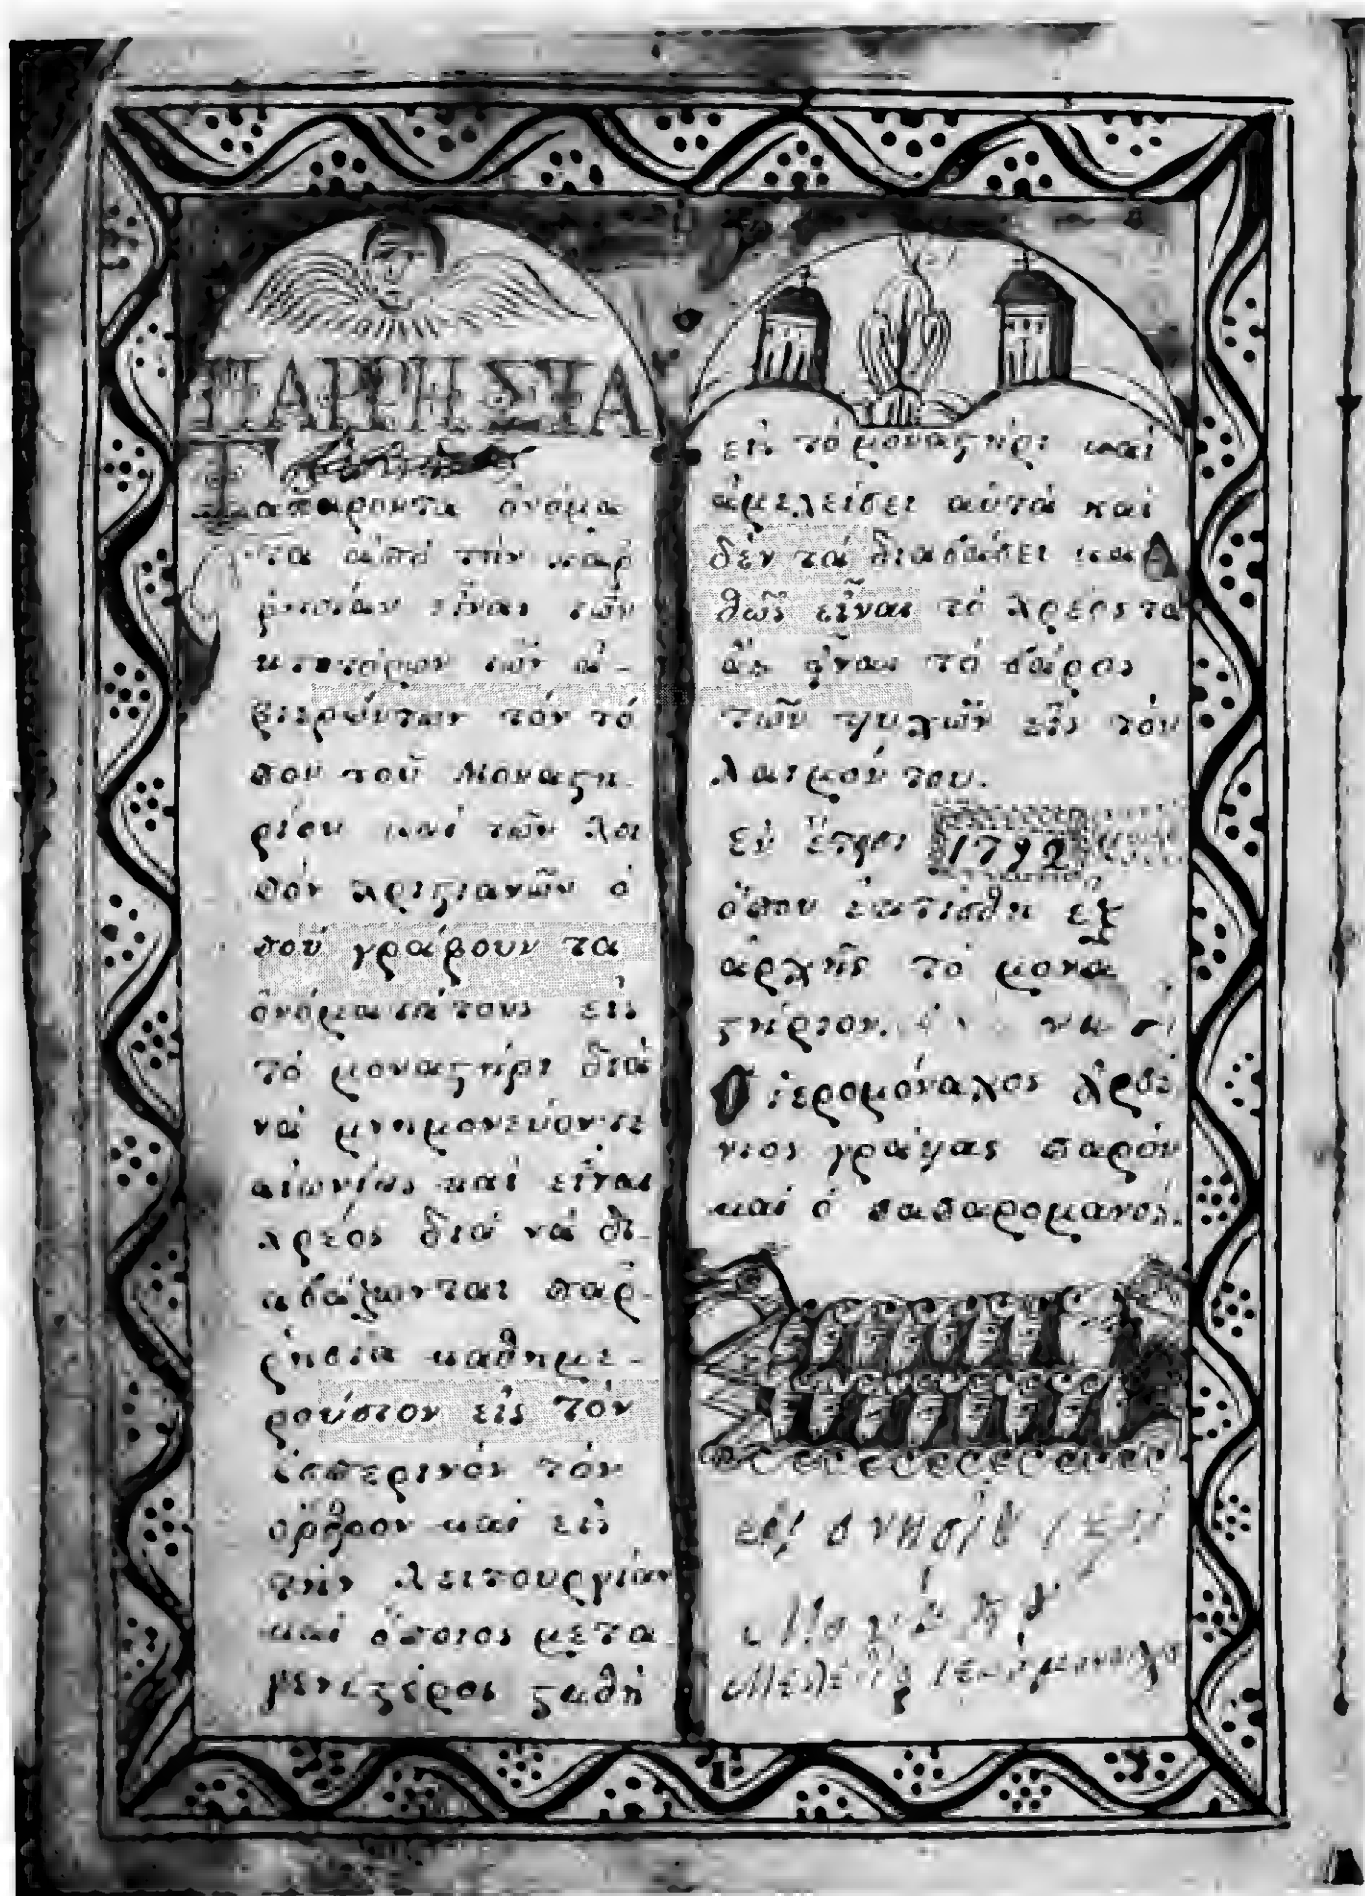 ΠΑΡΡΗΣΙΑ
Τα παρόντα ὀνόμα
τα ἀπό τήν παρ
ρησίαν εἶναι τῶν
κτητόρων τῶν ἀ-
φιερώντων τόν τό
πον τοῦ Μοναστη-
ρίου καί τῶν λοι
πόν χριστιανῶν ὁ
ποῦ γράφουν τα
ὀνόματάτους εἰς
τό μοναστήρι διά
νά μνημονεύονται
αἰωνίως καί εἶναι
χρέος διά νά δι-
αβάζωνται παρ-
ρησία καθημε-
ρούσιον εἰς τόν
ἑσπερινόν τόν
ὄρθρον καί εἰς
τήν λειτουργίαν
καί ὅποιος μετα
γενέστερος σταθῆ
εἰς τό μοναστήρι καί
ἀμελείσει αὐτά καί
δέν τά διαβάσει κα
θῶς εἶναι τό χρέος τα
ἄς ἦναι τό βάρος
τῶν ψυχῶν εἰς τόν
λαιμόν του.
ἐν ἔτησι 1792
ὅπου ἐκτίσθη ἐξ
ἀρχῆς τό μονα
στήριον.
Ὁ ἱερομόναχος Ἀρσέ
νιος γράψας παρόν
καί ὁ παπαρομανός.